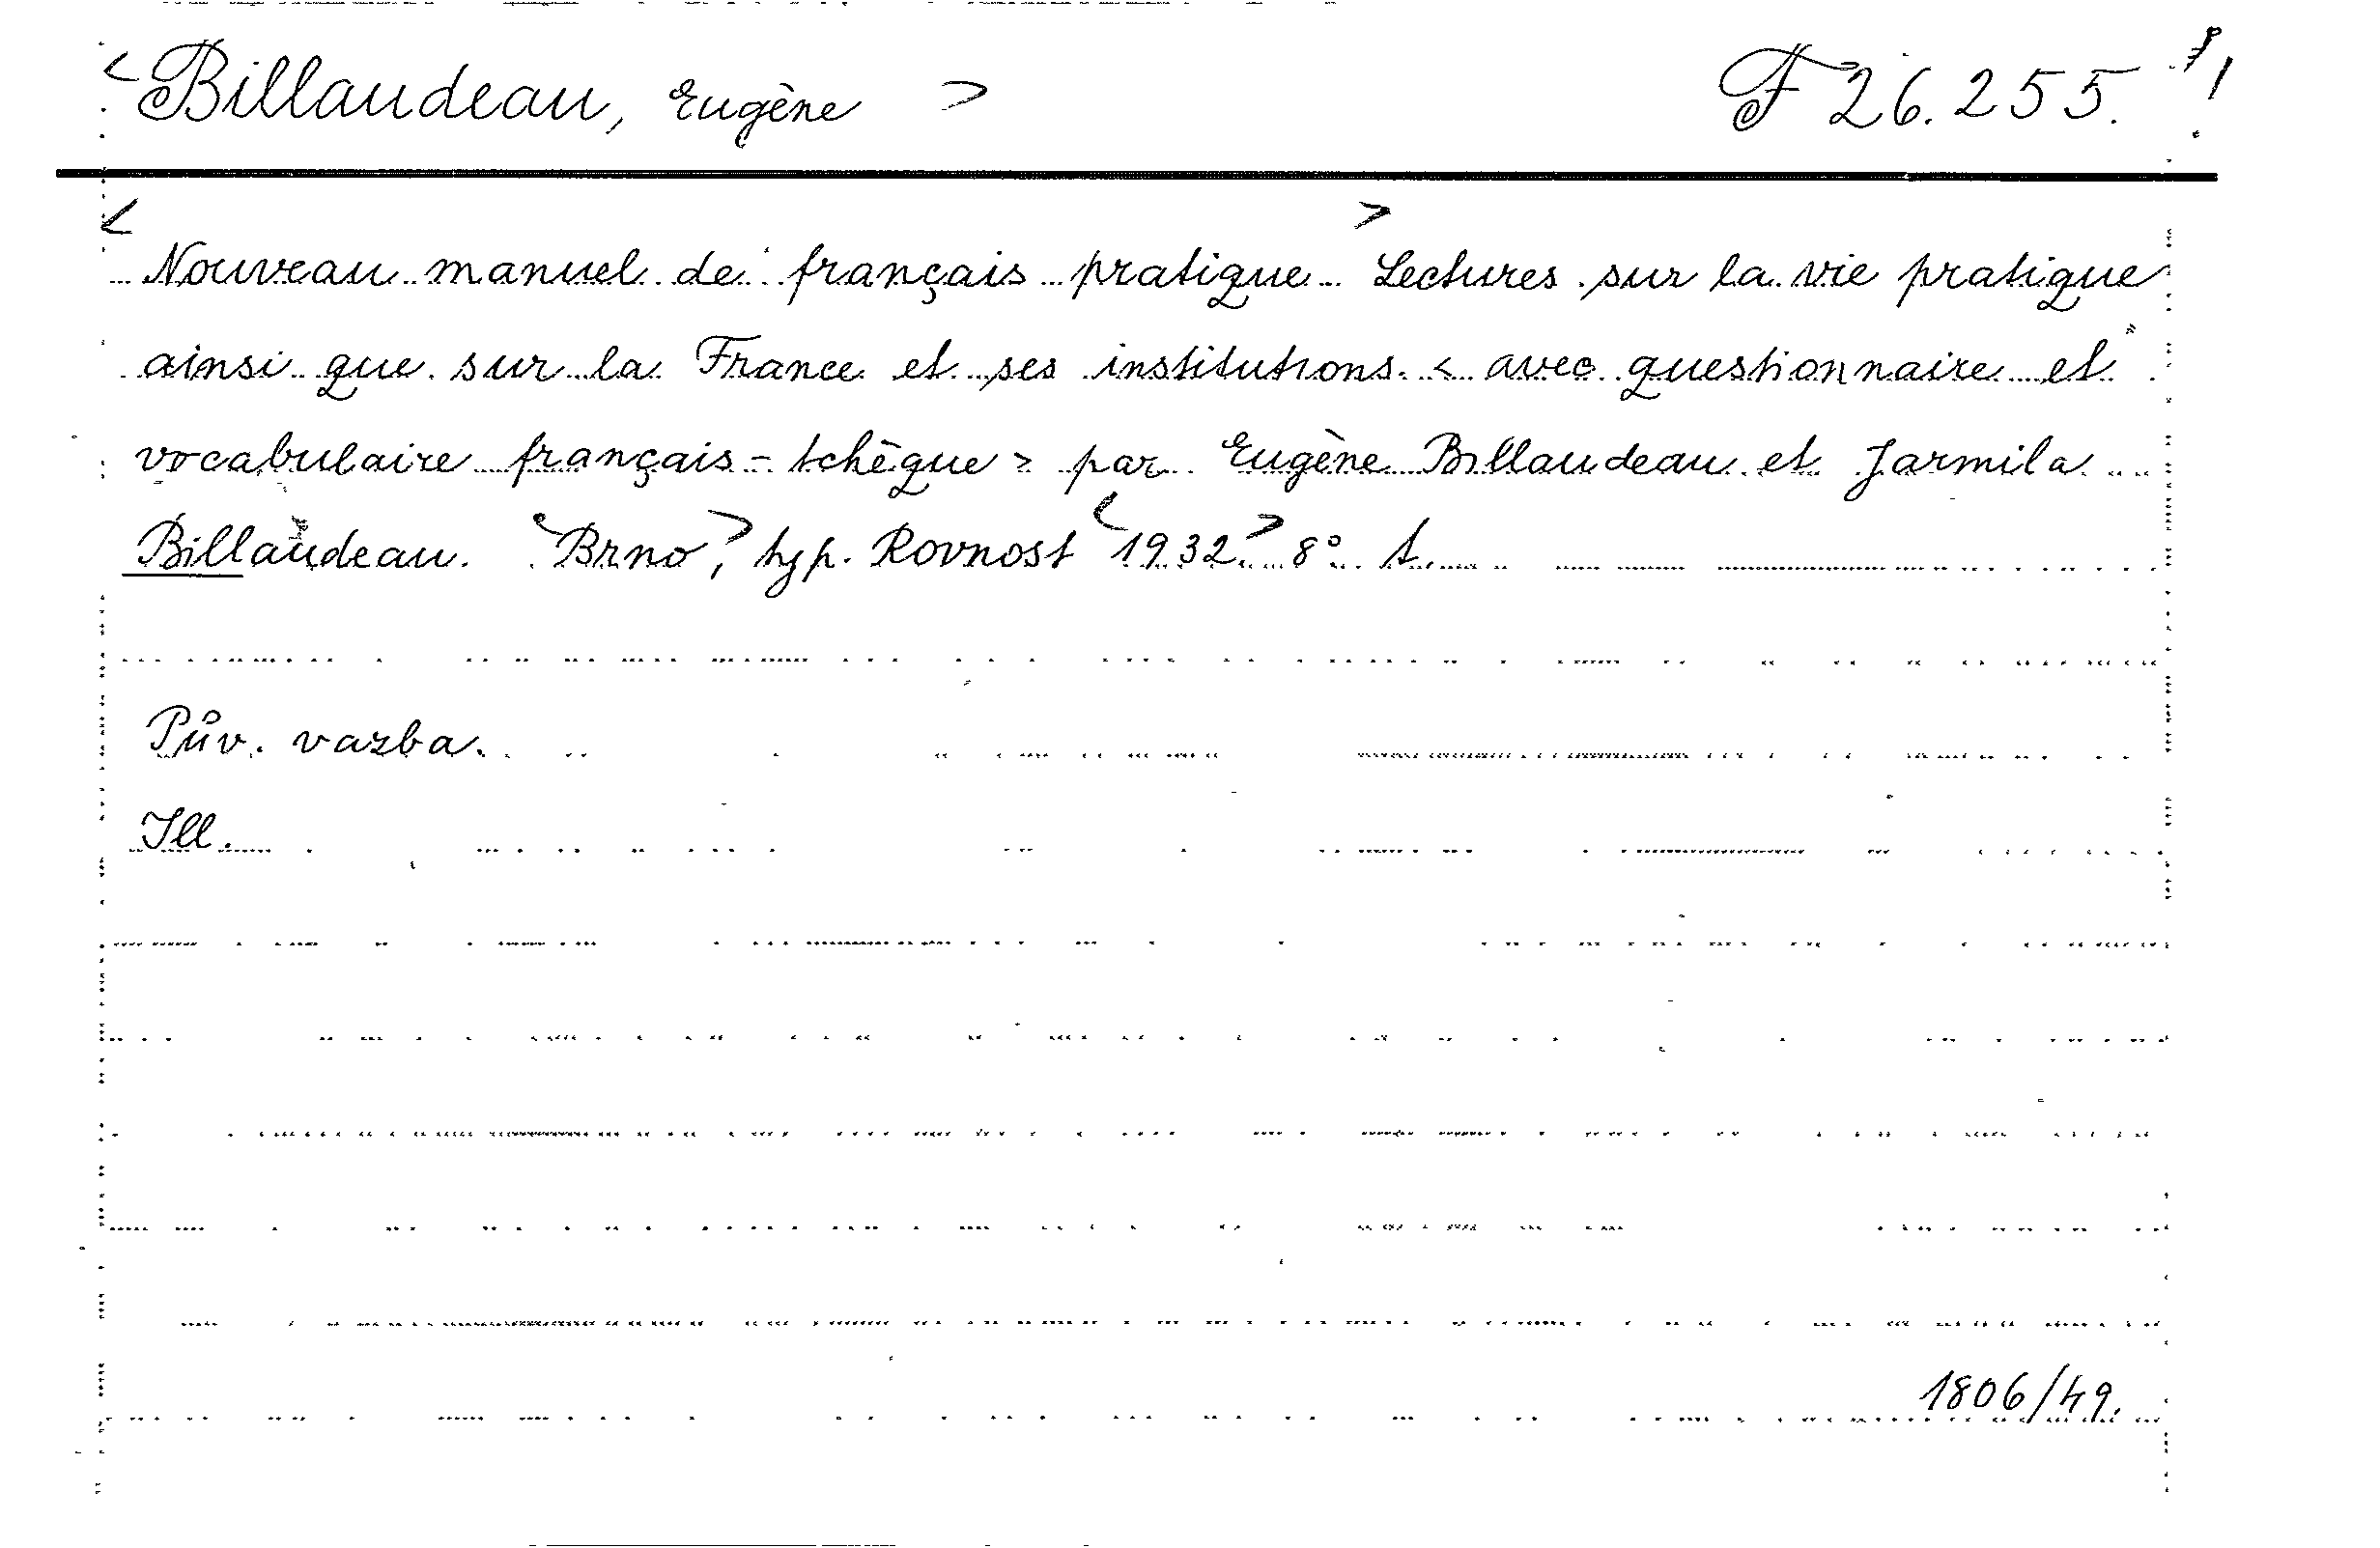 < Billaudeau, Eugène > F 26.255.
< Nouveau manuel de français pratique > Lectures sur la vie pratique
ainsi que sur la France et ses institutions < avec questionnaire et
vocabulaire français - tchèque > par Eugène Billaudeau et Jarmila
Billaudeau. < Brno >, typ. Rovnost < 1932. > 8° t.
Pův. vazba.
Ill.
1806/49.